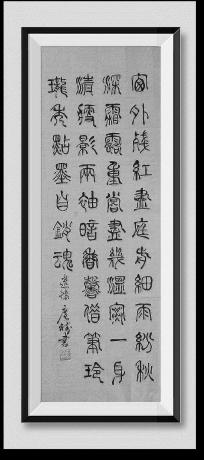 窗外殘紅盡庭前細雨紛秋
深霜露重嘗盡幾溫寒一身
清瘦影兩袖暗香馨借筆玲
瓏秀點墨自銷魂